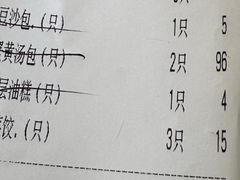 豆沙包.(只) 1只 5
黄汤包(只) 2只 96
层油糕(只) 1只 4
饺.(只) 3只 15